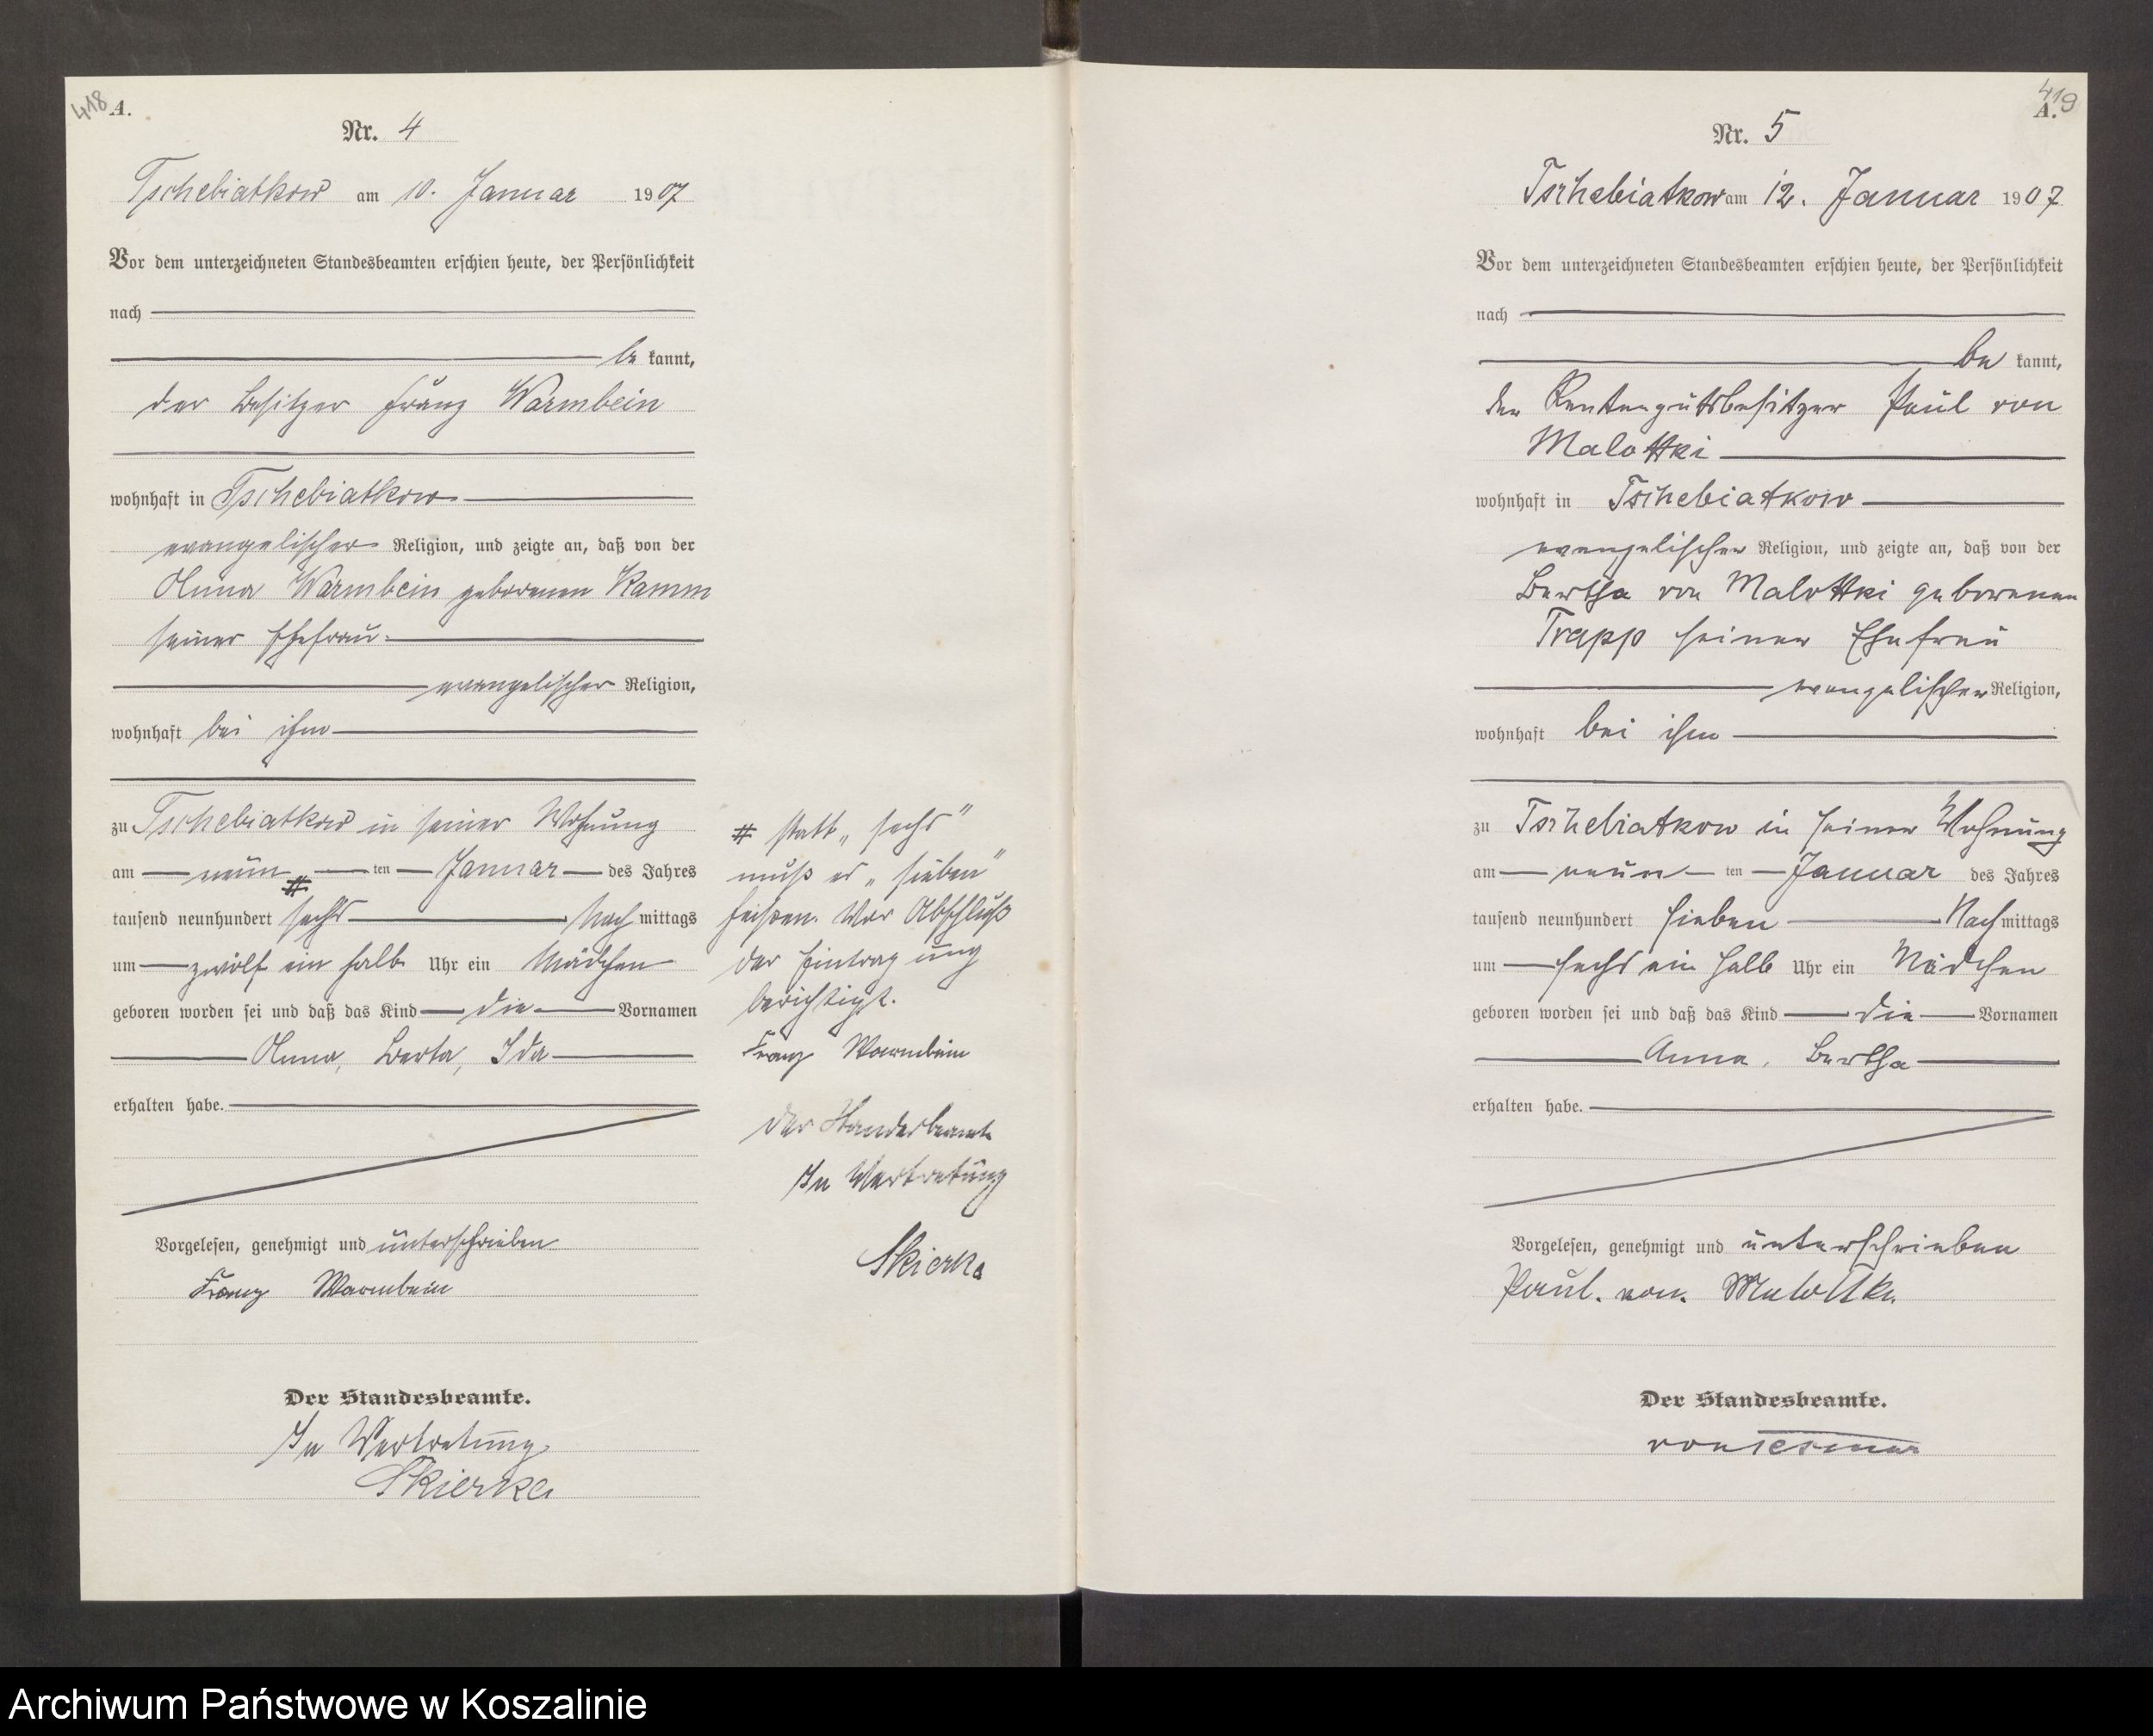 418 A.
Nr. 4
Tschebiatkow am 10. Januar 1907
Vor dem unterzeichneten Standesbeamten erschien heute, der Persönlichkeit
nach
be kannt,
der Besitzer Franz Warmbein
wohnhaft in Tschebiatkow
evangelischer Religion, und zeigte an, daß von der
Anna Warmbein geborenen Kamm
seiner Ehefrau
evangelischer Religion,
wohnhaft bei ihm
zu Tschebiatkow in seiner Wohnung
am neun ten Januar des Jahres
tausend neunhundert # sechs Nach mittags
um zwölf ein halb Uhr ein Mädchen
geboren worden sei und daß das Kind die Vornamen
Anna, Berta, Ida
erhalten habe.
Vorgelesen, genehmigt und unterschrieben
Franz Warmbein
Der Standesbeamte.
In Vertretung
Skierka
# statt „sechs"
muß es „sieben"
heißen. Vor Abschluß
der Eintragung
berichtigt.
Franz Warmbein
Der Standesbeamte
In Vertretung
Skierka
419
A.
Nr. 5
Tschebiatkow am 12. Januar 1907
Vor dem unterzeichneten Standesbeamten erschien heute, der Persönlichkeit
nach
be kannt,
der Rentengutsbesitzer Paul von
Malottki
wohnhaft in Tschebiatkow
evangelischer Religion, und zeigte an, daß von der
Bertha von Malottki geborenen
Trapp seiner Ehefrau
evangelischer Religion,
wohnhaft bei ihm
zu Tschebiatkow in seiner Wohnung
am neun ten Januar des Jahres
tausend neunhundert sieben Nach mittags
um sechs ein halb Uhr ein Mädchen
geboren worden sei und daß das Kind die Vornamen
Anna, Bertha
erhalten habe.
Vorgelesen, genehmigt und unterschrieben
Paul. von. Malottki.
Der Standesbeamte.
von Tesmar
Archiwum Państwowe w Koszalinie